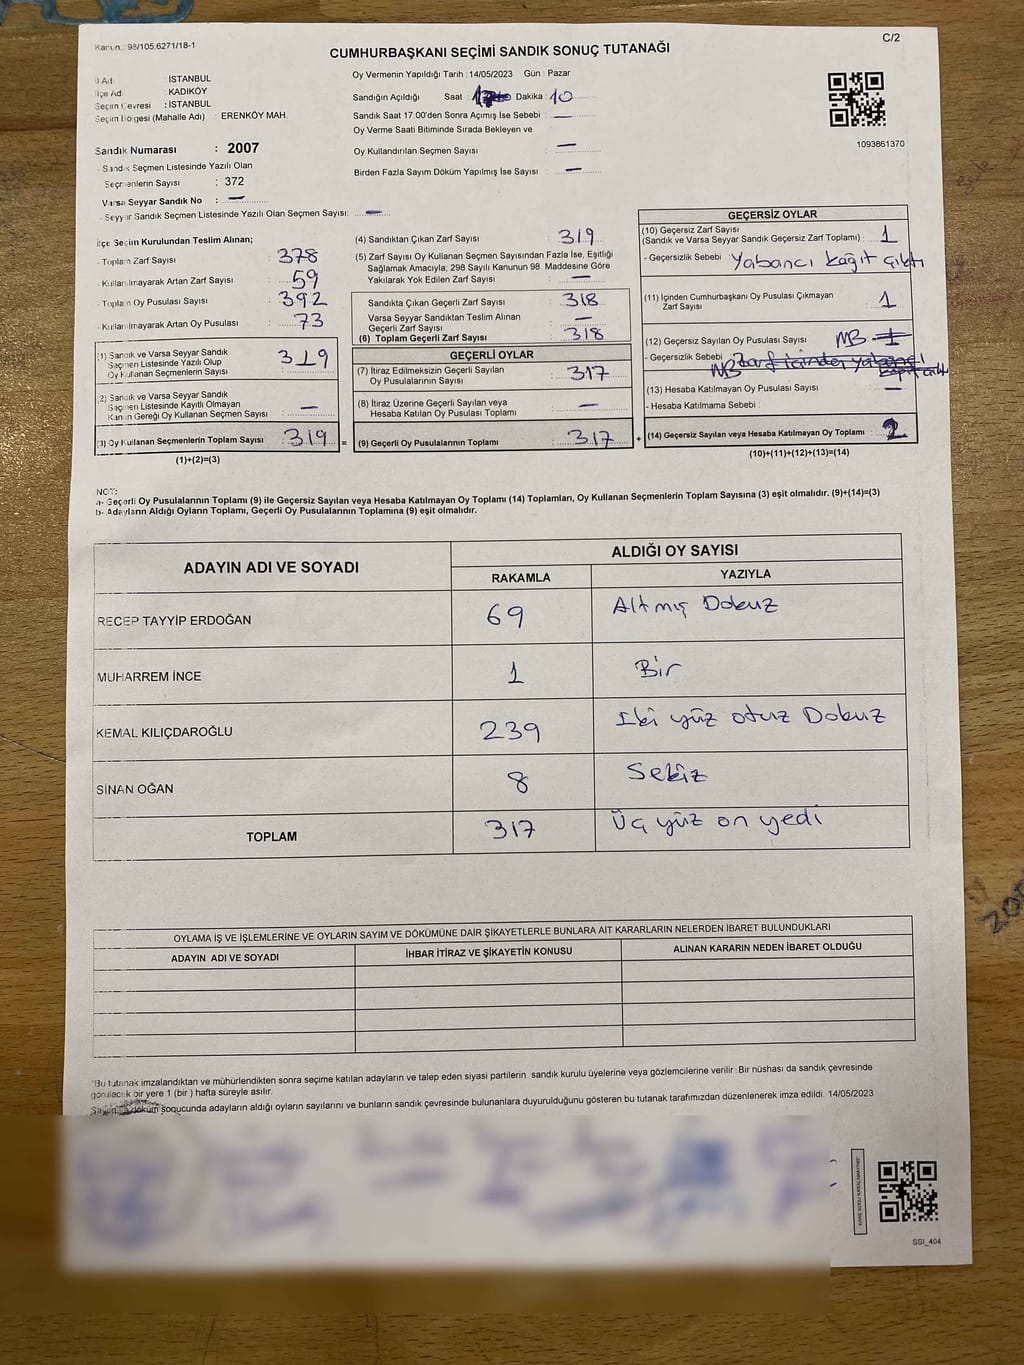 Kanun : 98/105,6271/18-1
C/2
CUMHURBAŞKANI SEÇİMİ SANDIK SONUÇ TUTANAĞI
İl Adı : İSTANBUL
İlçe Adı : KADIKÖY
Seçim Çevresi : İSTANBUL
Seçim Bölgesi (Mahalle Adı) : ERENKÖY MAH.
Sandık Numarası : 2007
- Sandık Seçmen Listesinde Yazılı Olan
Seçmenlerin Sayısı : 372
Varsa Seyyar Sandık No : —
- Seyyar Sandık Seçmen Listesinde Yazılı Olan Seçmen Sayısı: —
Oy Vermenin Yapıldığı Tarih : 14/05/2023 Gün : Pazar
Sandığın Açıldığı Saat : Dakika : 10
Sandık Saat 17.00'den Sonra Açımış İse Sebebi : —
Oy Verme Saati Bitiminde Sırada Bekleyen ve
Oy Kullandırılan Seçmen Sayısı : —
Birden Fazla Sayım Döküm Yapılmış İse Sayısı : —
1093861370
İlçe Seçim Kurulundan Teslim Alınan;
- Toplam Zarf Sayısı : 378
- Kullanılmayarak Artan Zarf Sayısı : 59
- Toplam Oy Pusulası Sayısı : 392
- Kullanılmayarak Artan Oy Pusulası : 73
(1) Sandık ve Varsa Seyyar Sandık
Seçmen Listesinde Yazılı Olup
Oy Kullanan Seçmenlerin Sayısı : 319
(2) Sandık ve Varsa Seyyar Sandık
Seçmen Listesinde Kayıtlı Olmayan
Kanun Gereği Oy Kullanan Seçmen Sayısı : —
(3) Oy Kullanan Seçmenlerin Toplam Sayısı : 319 =
(1)+(2)=(3)
(4) Sandıktan Çıkan Zarf Sayısı : 319
(5) Zarf Sayısı Oy Kullanan Seçmen Sayısından Fazla İse, Eşitliği
Sağlamak Amacıyla; 298 Sayılı Kanunun 98. Maddesine Göre
Yakılarak Yok Edilen Zarf Sayısı : —
Sandıkta Çıkan Geçerli Zarf Sayısı : 318
Varsa Seyyar Sandıktan Teslim Alınan
Geçerli Zarf Sayısı : —
(6) Toplam Geçerli Zarf Sayısı : 318
GEÇERLİ OYLAR
(7) İtiraz Edilmeksizin Geçerli Sayılan
Oy Pusulalarının Sayısı : 317
(8) İtiraz Üzerine Geçerli Sayılan veya
Hesaba Katılan Oy Pusulası Toplamı : —
(9) Geçerli Oy Pusulalarının Toplamı : 317 +
GEÇERSİZ OYLAR
(10) Geçersiz Zarf Sayısı
(Sandık ve Varsa Seyyar Sandık Geçersiz Zarf Toplamı) : 1
- Geçersizlik Sebebi : Yabancı kağıt çıktı
(11) İçinden Cumhurbaşkanı Oy Pusulası Çıkmayan
Zarf Sayısı : 1
(12) Geçersiz Sayılan Oy Pusulası Sayısı : MB 1
- Geçersizlik Sebebi : MB Zarf içinden yabancı
kağıt çıktı
(13) Hesaba Katılmayan Oy Pusulası Sayısı : —
- Hesaba Katılmama Sebebi :
(14) Geçersiz Sayılan veya Hesaba Katılmayan Oy Toplamı : 2
(10)+(11)+(12)+(13)=(14)
NOT:
a- Geçerli Oy Pusulalarının Toplamı (9) ile Geçersiz Sayılan veya Hesaba Katılmayan Oy Toplamı (14) Toplamları, Oy Kullanan Seçmenlerin Toplam Sayısına (3) eşit olmalıdır. (9)+(14)=(3)
b- Adayların Aldığı Oyların Toplamı, Geçerli Oy Pusulalarının Toplamına (9) eşit olmalıdır.
ADAYIN ADI VE SOYADI
ALDIĞI OY SAYISI
RAKAMLA YAZIYLA
RECEP TAYYİP ERDOĞAN 69 Altmış Dokuz
MUHARREM İNCE 1 Bir
KEMAL KILIÇDAROĞLU 239 İki yüz otuz Dokuz
SİNAN OĞAN 8 Sekiz
TOPLAM 317 Üç yüz on yedi
OYLAMA İŞ VE İŞLEMLERİNE VE OYLARIN SAYIM VE DÖKÜMÜNE DAİR ŞİKAYETLERLE BUNLARA AİT KARARLARIN NELERDEN İBARET BULUNDUKLARI
ADAYIN ADI VE SOYADI İHBAR İTİRAZ VE ŞİKAYETİN KONUSU ALINAN KARARIN NEDEN İBARET OLDUĞU
"Bu tutanak imzalandıktan ve mühürlendikten sonra seçime katılan adayların ve talep eden siyasi partilerin sandık kurulu üyelerine veya gözlemcilerine verilir. Bir nüshası da sandık çevresinde
görülecek bir yere 1 (bir ) hafta süreyle asılır.
Sayım ve döküm sonucunda adayların aldığı oyların sayılarını ve bunların sandık çevresinde bulunanlara duyurulduğunu gösteren bu tutanak tarafımızdan düzenlenerek imza edildi. 14/05/2023
KARE KODU KARALAMAYINIZ!
SSI_404